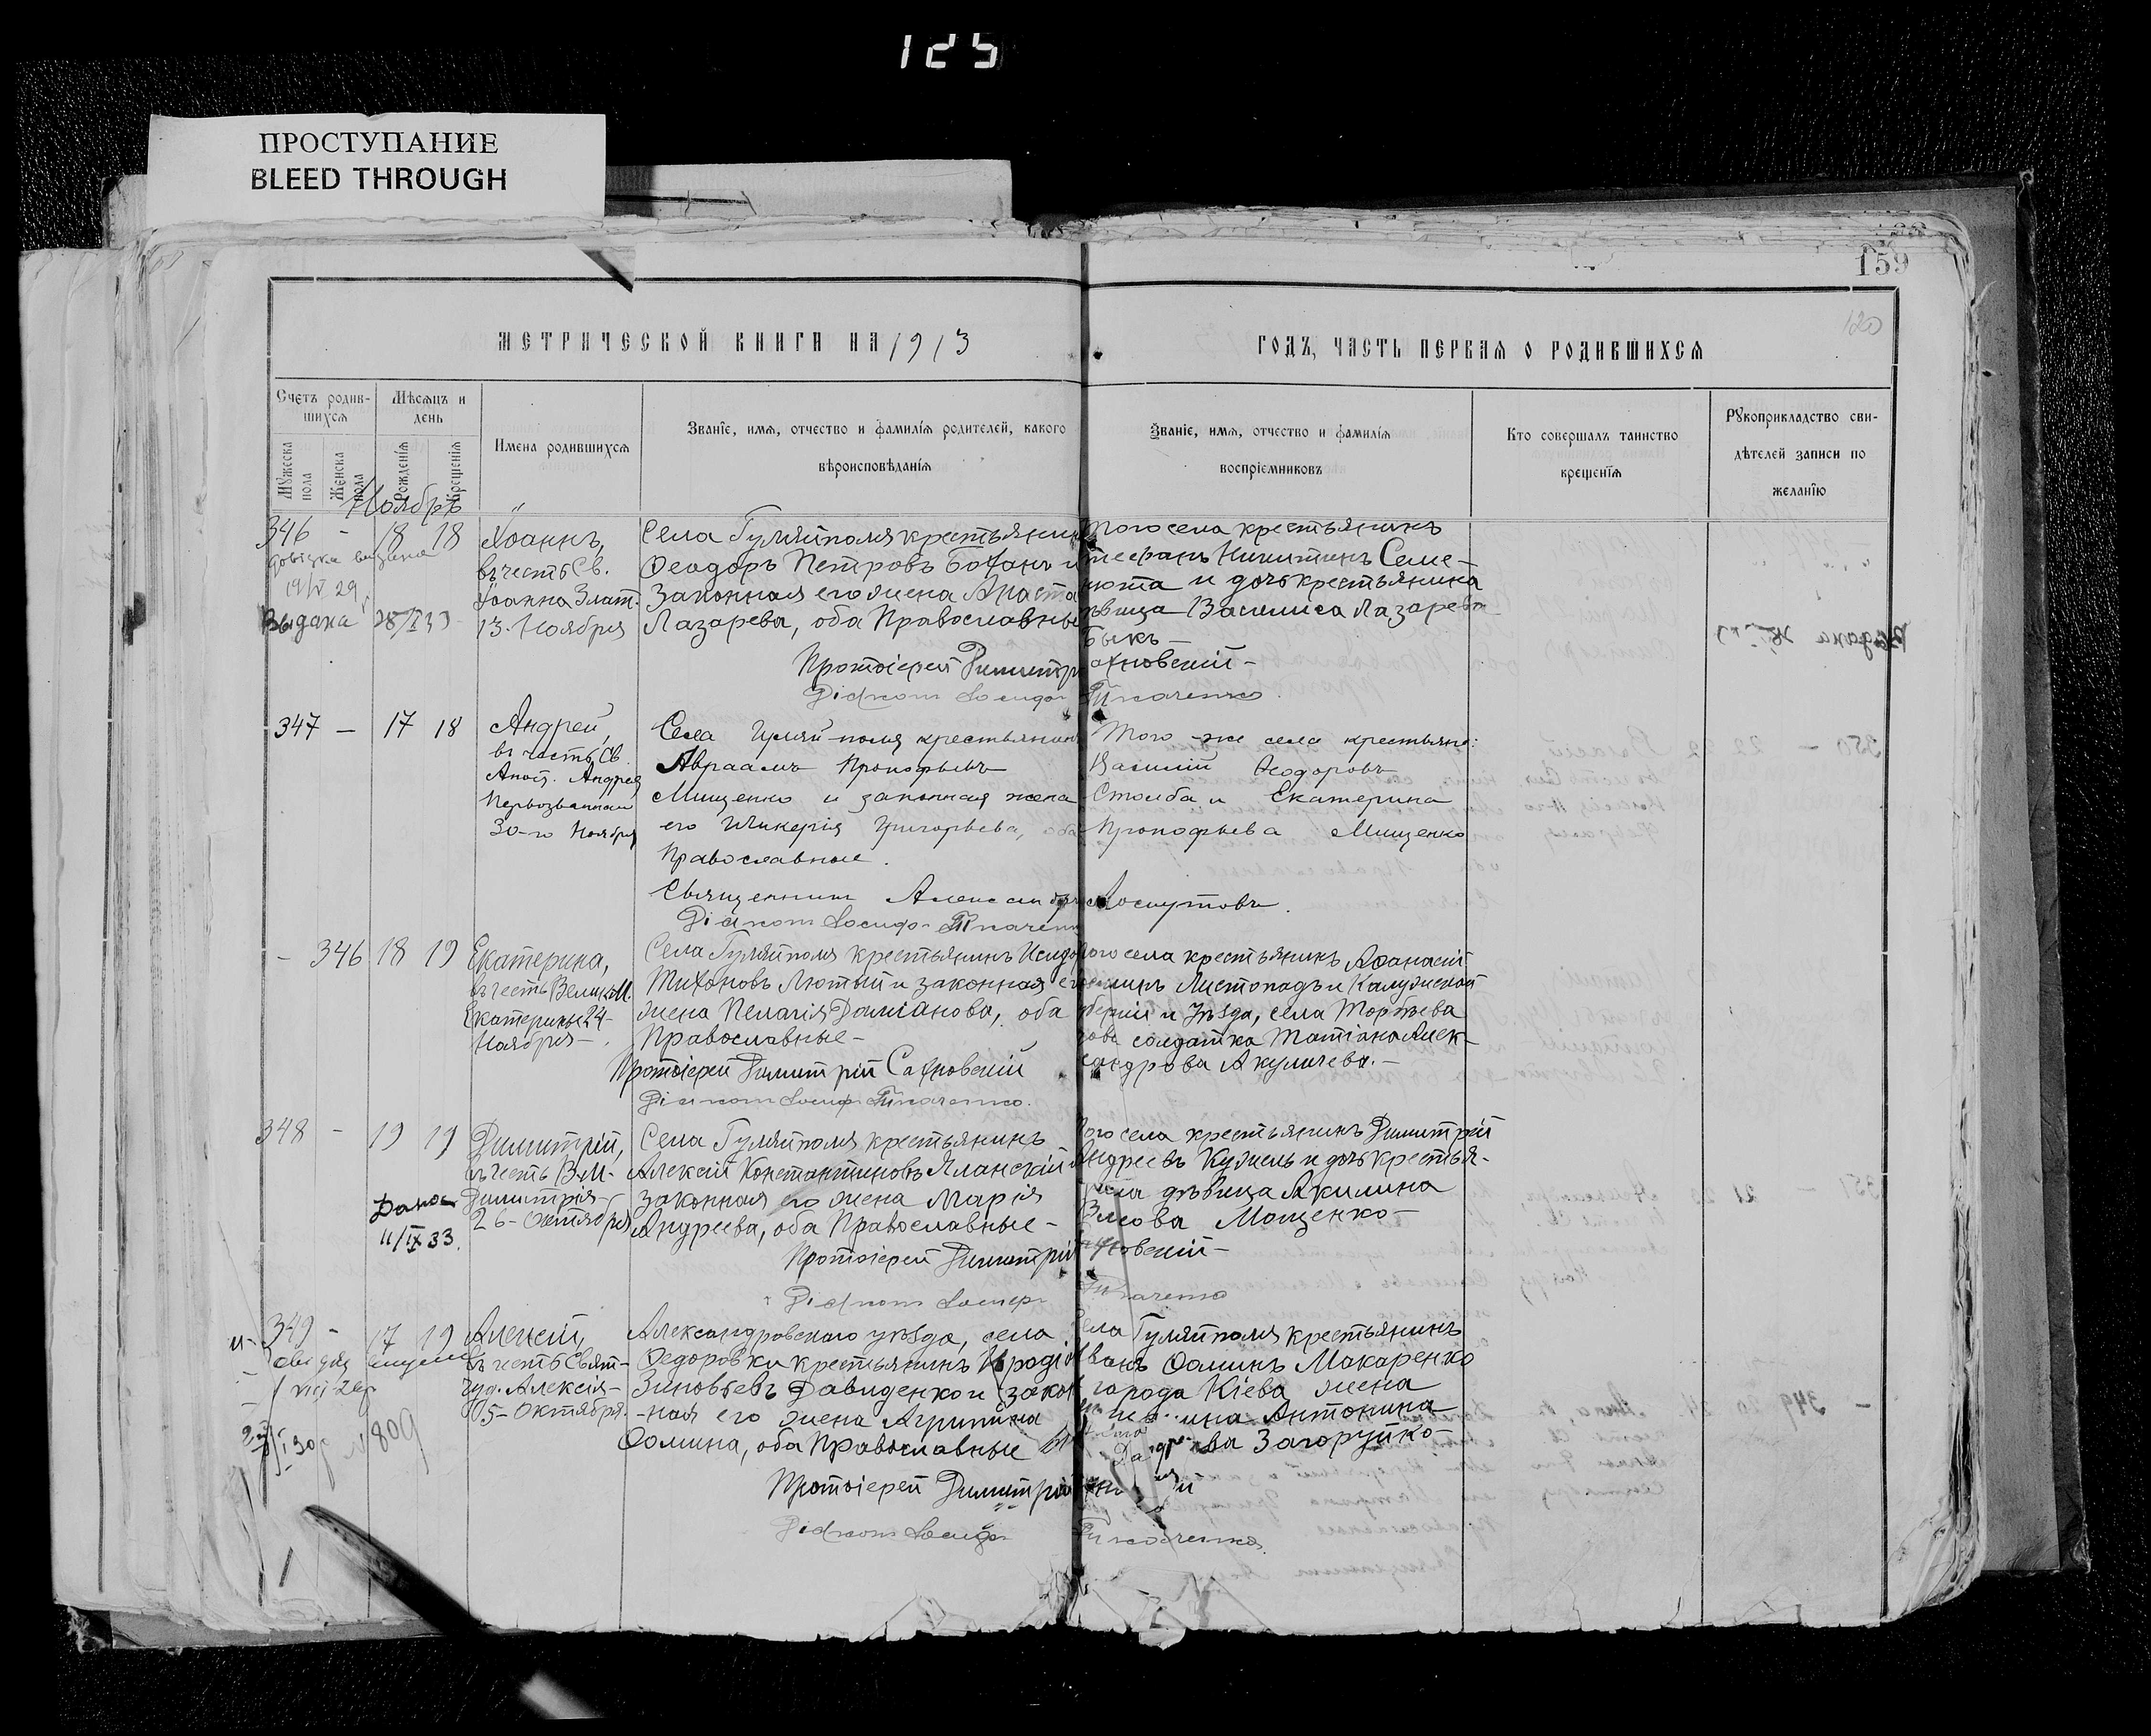 125
ПРОСТУПАНИЕ
BLEED THROUGH
159
120
МЕТРИЧЕСКОЙ КНИГИ НА 1913
ГОДЪ, ЧАСТЬ ПЕРВАЯ О РОДИВШИХСЯ
Счетъ родив-
шихся
Мѣсяцъ и
день
Мужеска
пола
Женска
пола
Рожденія
Крещенія
Имена родившихся
Званіе, имя, отчество и фамилія родителей, какого
вѣроисповѣданія
Званіе, имя, отчество и фамилія
воспріемниковъ
Кто совершалъ таинство
крещенія
Рукоприкладство сви-
дѣтелей записи по
желанію
Ноябрь
346 - 18 18
Іоаннъ,
въ честь Св.
Іоанна Злат.
13. Ноября
Выдана 28/
Села Гуляйполя крестьянин
Ѳеодоръ Петровъ Боханъ и
законная его жена Анаста
Лазарева, оба Православны
того села крестьянинъ
Стефанъ Никитинъ Семе-
нюта и дочь крестьянина
дѣвица Василиса Лазарева
Быкъ-
Протоіерей Димитрі ахновскій-
Діакон Іосиф Ткаченко.
347 — 17 18
Андрей,
въ честь Св.
Апост. Андрея
Первозваннаго
30-го Ноября
Села Гуляй-поля крестьянин
Авраамъ Прокофьевъ
Мищенко и законная жена
его Гликерія Григорьева, оба
Православные.
Того-же села крестьяне:
Василій Ѳеодоровъ
Столба и Екатерина
Прокофьева Мищенко
Священник Александръ Лоскутовъ.
Діакон Іосиф Ткаченко
- 346 18 19
Екатерина,
въ честь Велик. М.
Екатерины 24-
Ноября-
Села Гуляйполя крестьянинъ Исидор
Тихоновъ Лютый и законная его
жена Пелагія Даміанова, оба
Православные-
того села крестьянинъ Аѳанасій
Листопадъ и Калужской
губерніи и Уѣзда, села Торбѣева
солдатка Татіана Алек-
сандрова Акуличева.-
Протоіерей Димитрій Сахновскій
Діакон Іосиф Ткаченко.
348 - 19 19
Димитрій,
въ честь В. М.
Димитрія-
26-Октября
11/IX 33.
Села Гуляйполя крестьянинъ
Алексій Константиновъ Яланскій
законная его жена Марія
Андреева, оба Православные-
того села крестьянинъ Димитрій
Андреевъ Кужель и дочь крестья-
нина дѣвица Акилина
Власова Мощенко-
Протоіерей Димитрій хновскій-
Діакон Іосиф Ткаченко
349 - 17 19
Алексій,
въ честь Свят-
чуд. Алексія-
5-Октября.
№ 809
Александровскаго уѣзда, села
Ѳедоровки крестьянинъ Иродіо
Зиновьевъ Давиденко и закон
-ная его жена Агрипина
Ѳомина, оба Православные
Села Гуляйполя крестьянинъ
Иванъ Ѳоминъ Макаренко
города Кіева жена
Антонина
Загоруйко-
Протоіерей Димитрій
Діакон Іосиф Ткаченко.